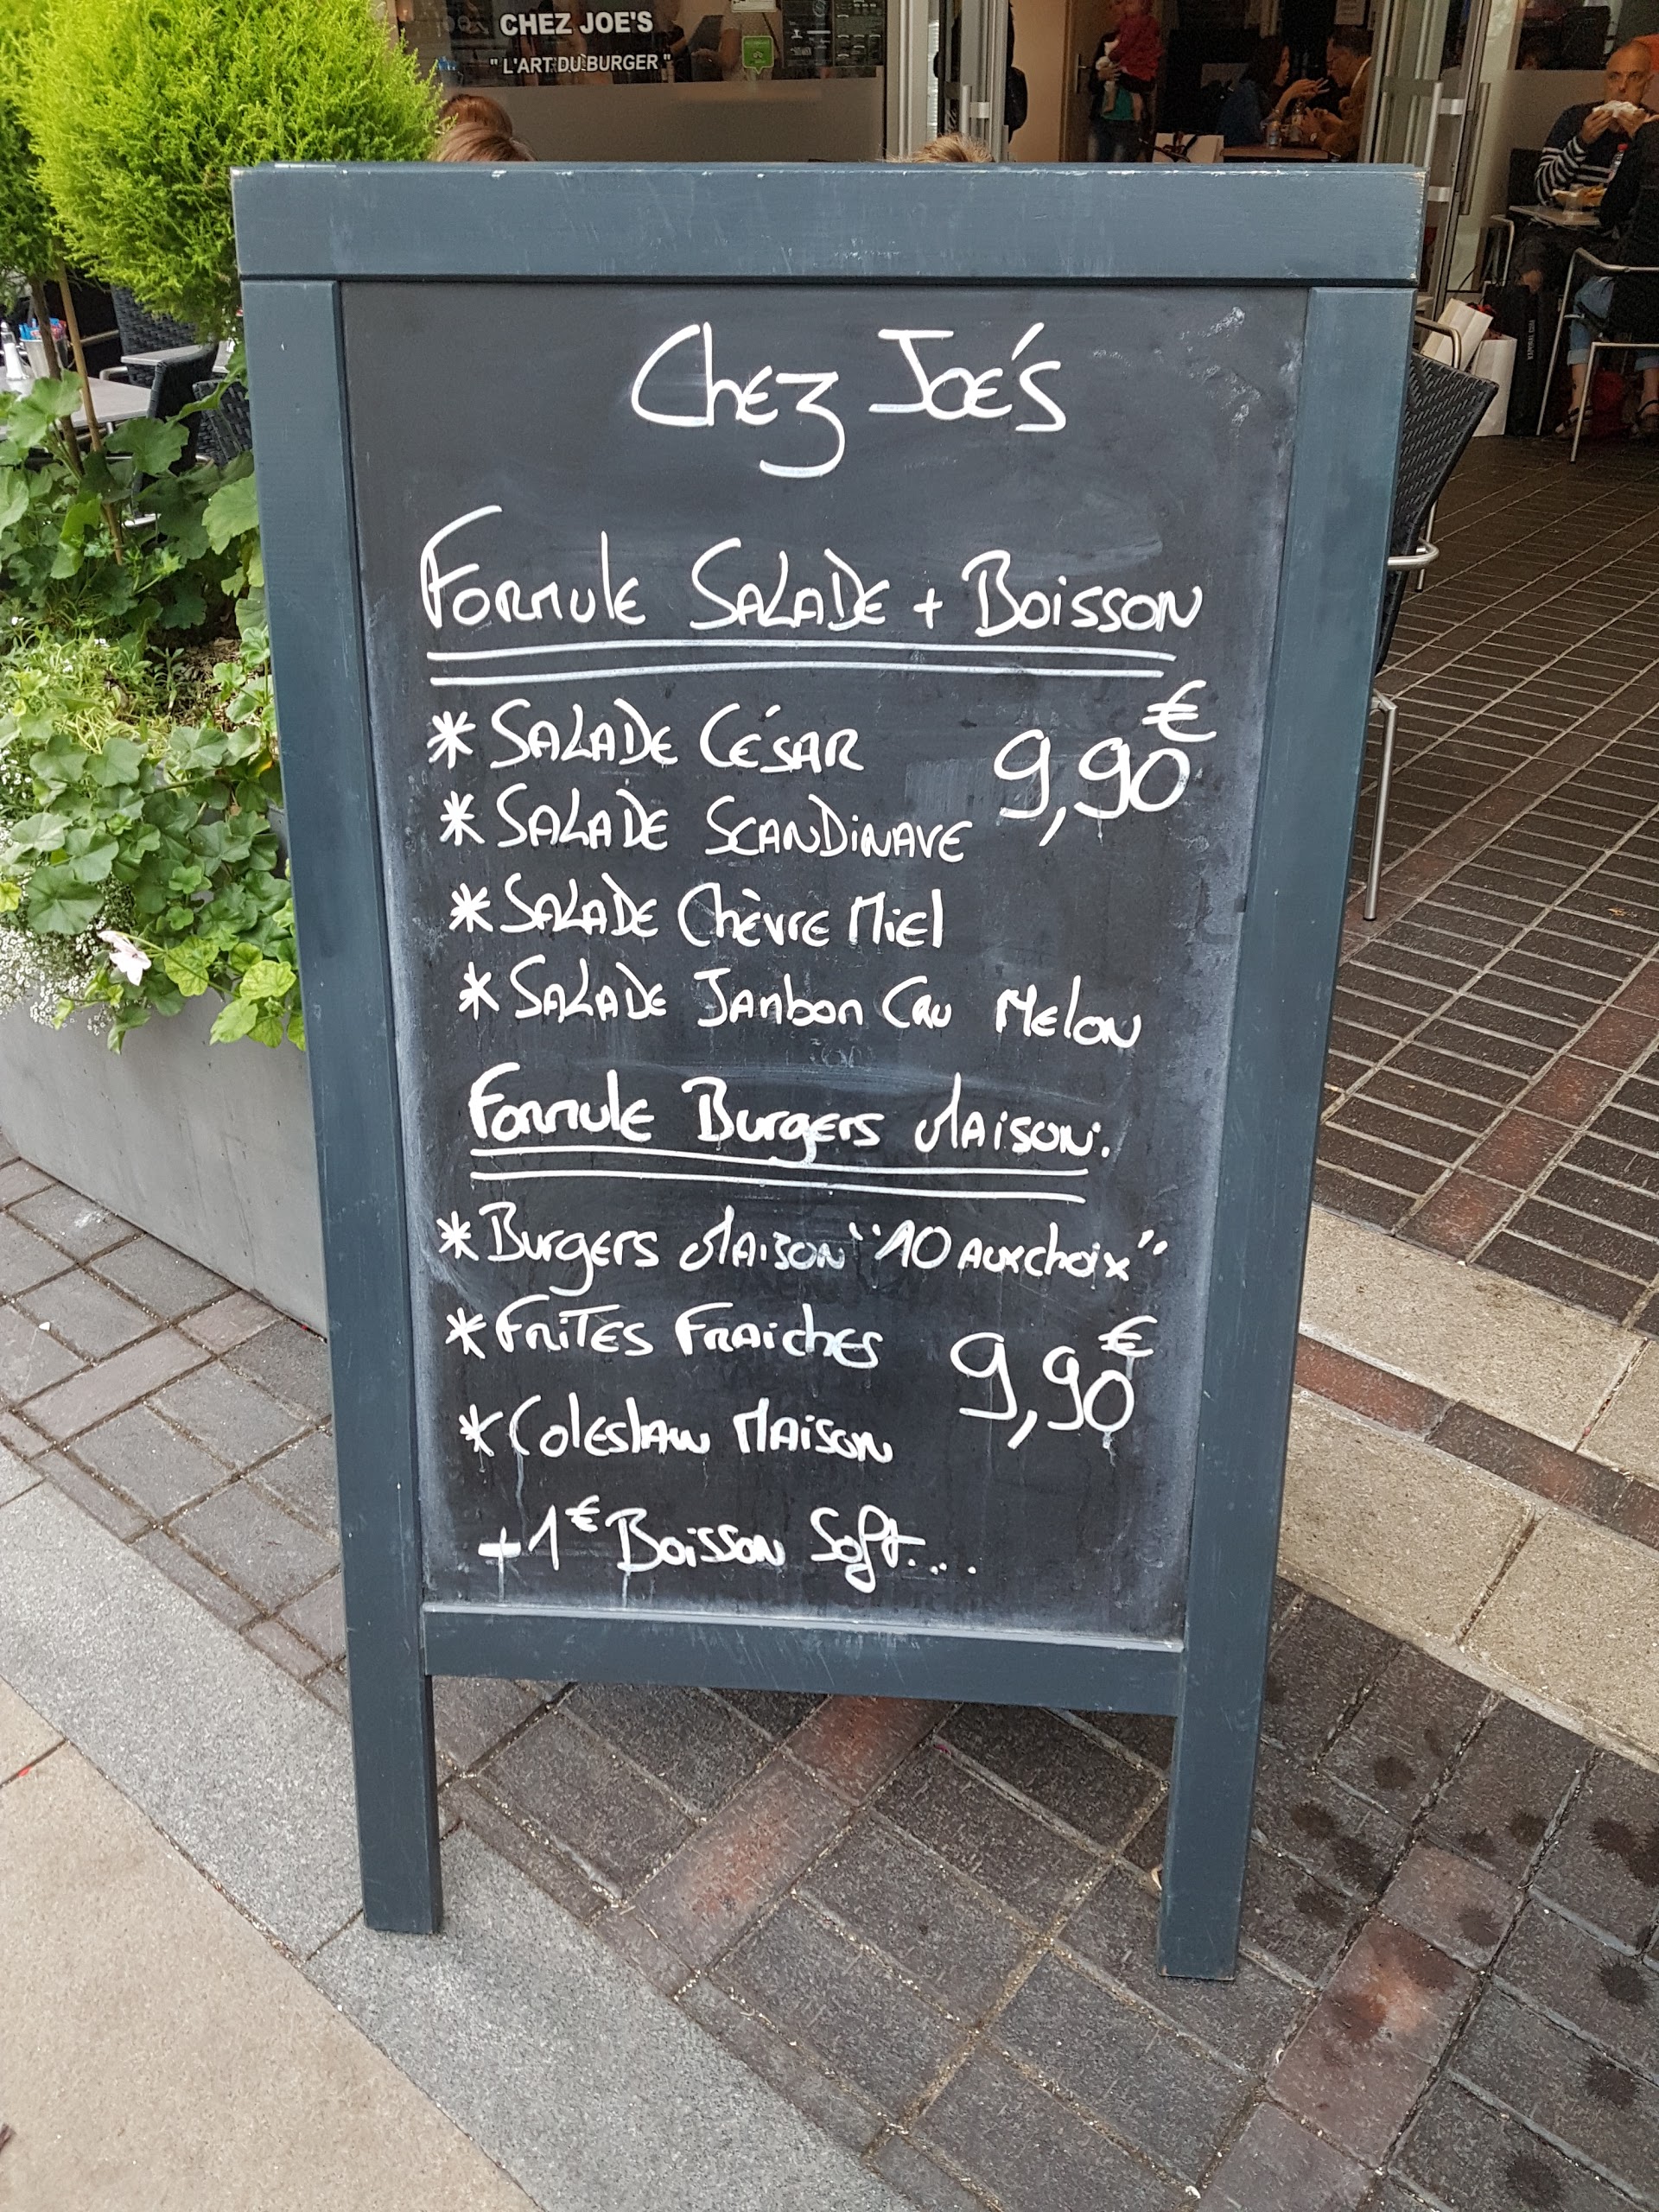 CHEZ JOE'S
" L'ART DU BURGER "
Chez Joe's
Formule Salade + Boisson
* Salade César 9,90€
* Salade Scandinave
* Salade Chèvre Miel
* Salade Jambon Cru Melon
Formule Burgers Maison.
* Burgers Maison "10 aux choix"
* Frites Fraiches 9,90€
* Coleslaw Maison
+1€ Boisson Soft...